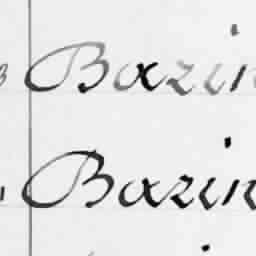 Bazin
Bazin